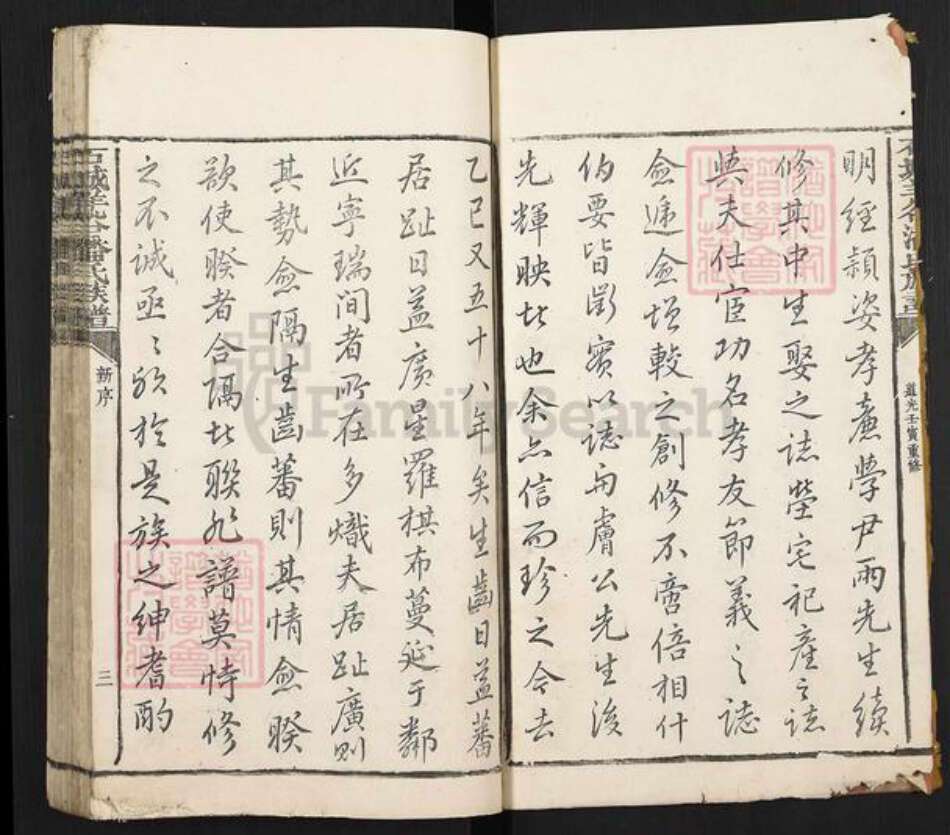 明經穎姿孝亷學尹兩先生續
修其中生娶之誌塋宅祀產之誌
與夫仕宦功名孝友節義之誌
僉遞僉增較之創修不啻倍相什
伯要皆徵實以誌而膚公先生後
先輝映比也余亦信而珍之今去
乙巳又五十八年矣生齒日益蕃
居趾日益廣星羅棋布蔓延于鄰
近寧瑞间者所在多熾夫居趾廣则
其勢愈隔生齒蕃則其情愈睽
欲使睽者合隔比聯非譜莫恃修
之不誠亟亟於是族之紳耆酌
道光壬寅重修
石城羊谷潘氏族譜
新序
三
FamilySearch